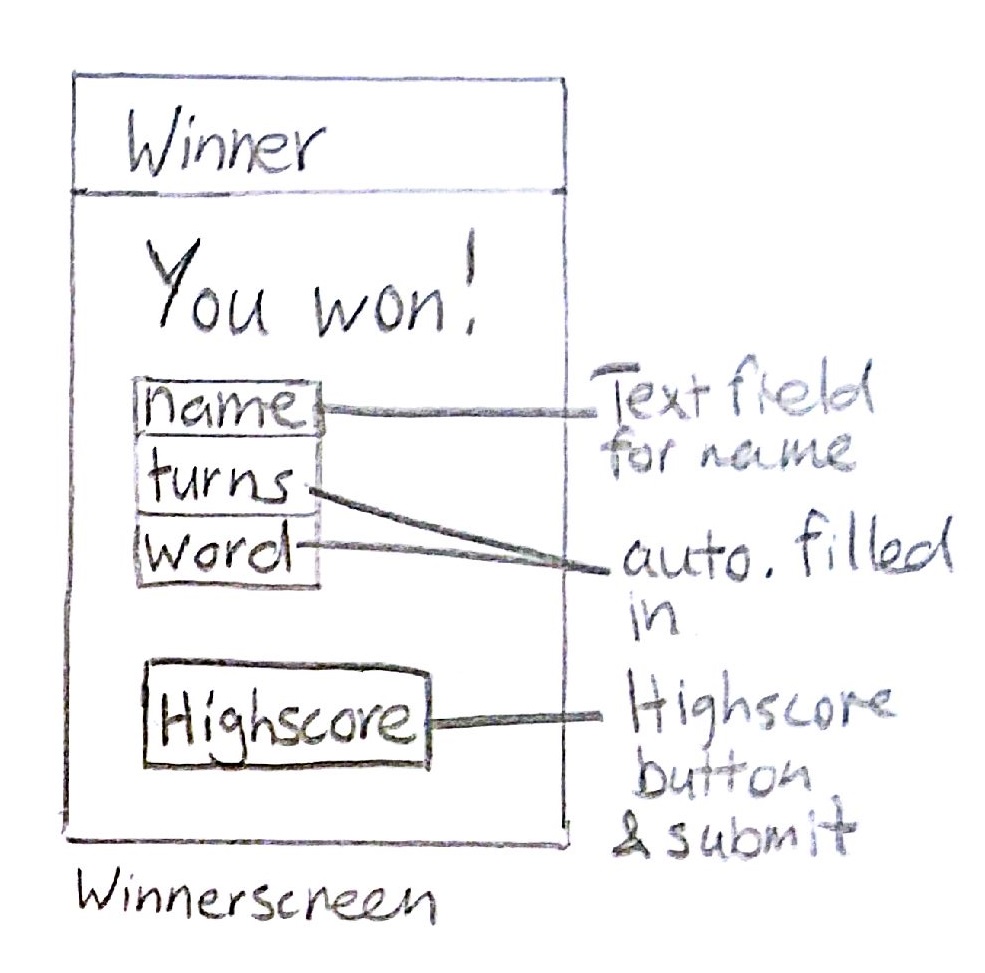 Winner
You won!
name
turns
word
Highscore
Text field
for name
auto. filled
in
Highscore
button
& submit
Winnerscreen